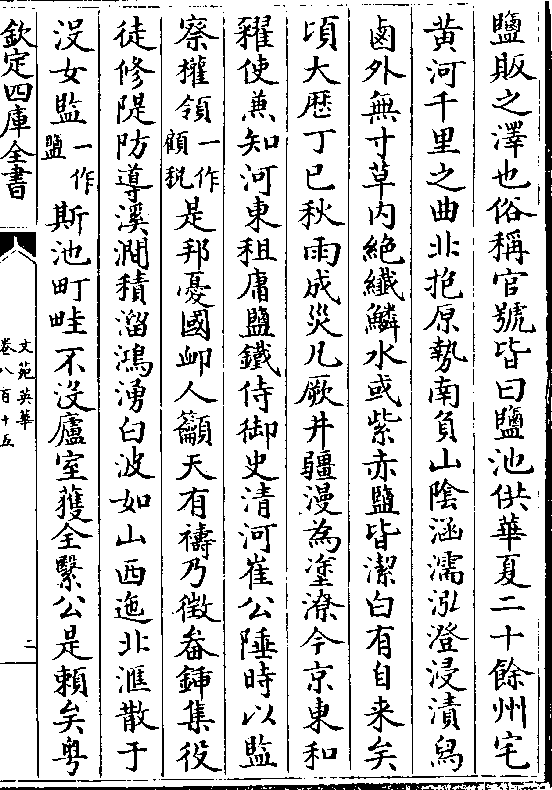 鹽販之澤也俗稱官號皆曰鹽池供華夏二十餘州宅
黄河千里之曲北抱原勢南負山陰涵濡泓澄浸漬舄
鹵外無寸草内絶纎鱗水或紫赤鹽皆潔白有自来矣
頃大歴丁巳秋雨成災凡厥井疆漫為塗潦今京東和
糴使兼知河東租庸鹽鐵侍御史清河崔公陲時以監
察㩁領一作顧稅是邦憂國䘏人籲天有禱乃徴畚鍤集役
徒修隄防導溪澗積溜鴻湧白波如山西迤北滙散于
没女監一作鹽斯池町畦不没廬室獲全繄公是頼矣粤
欽定四庫全書
文苑英華
卷八百十五
二